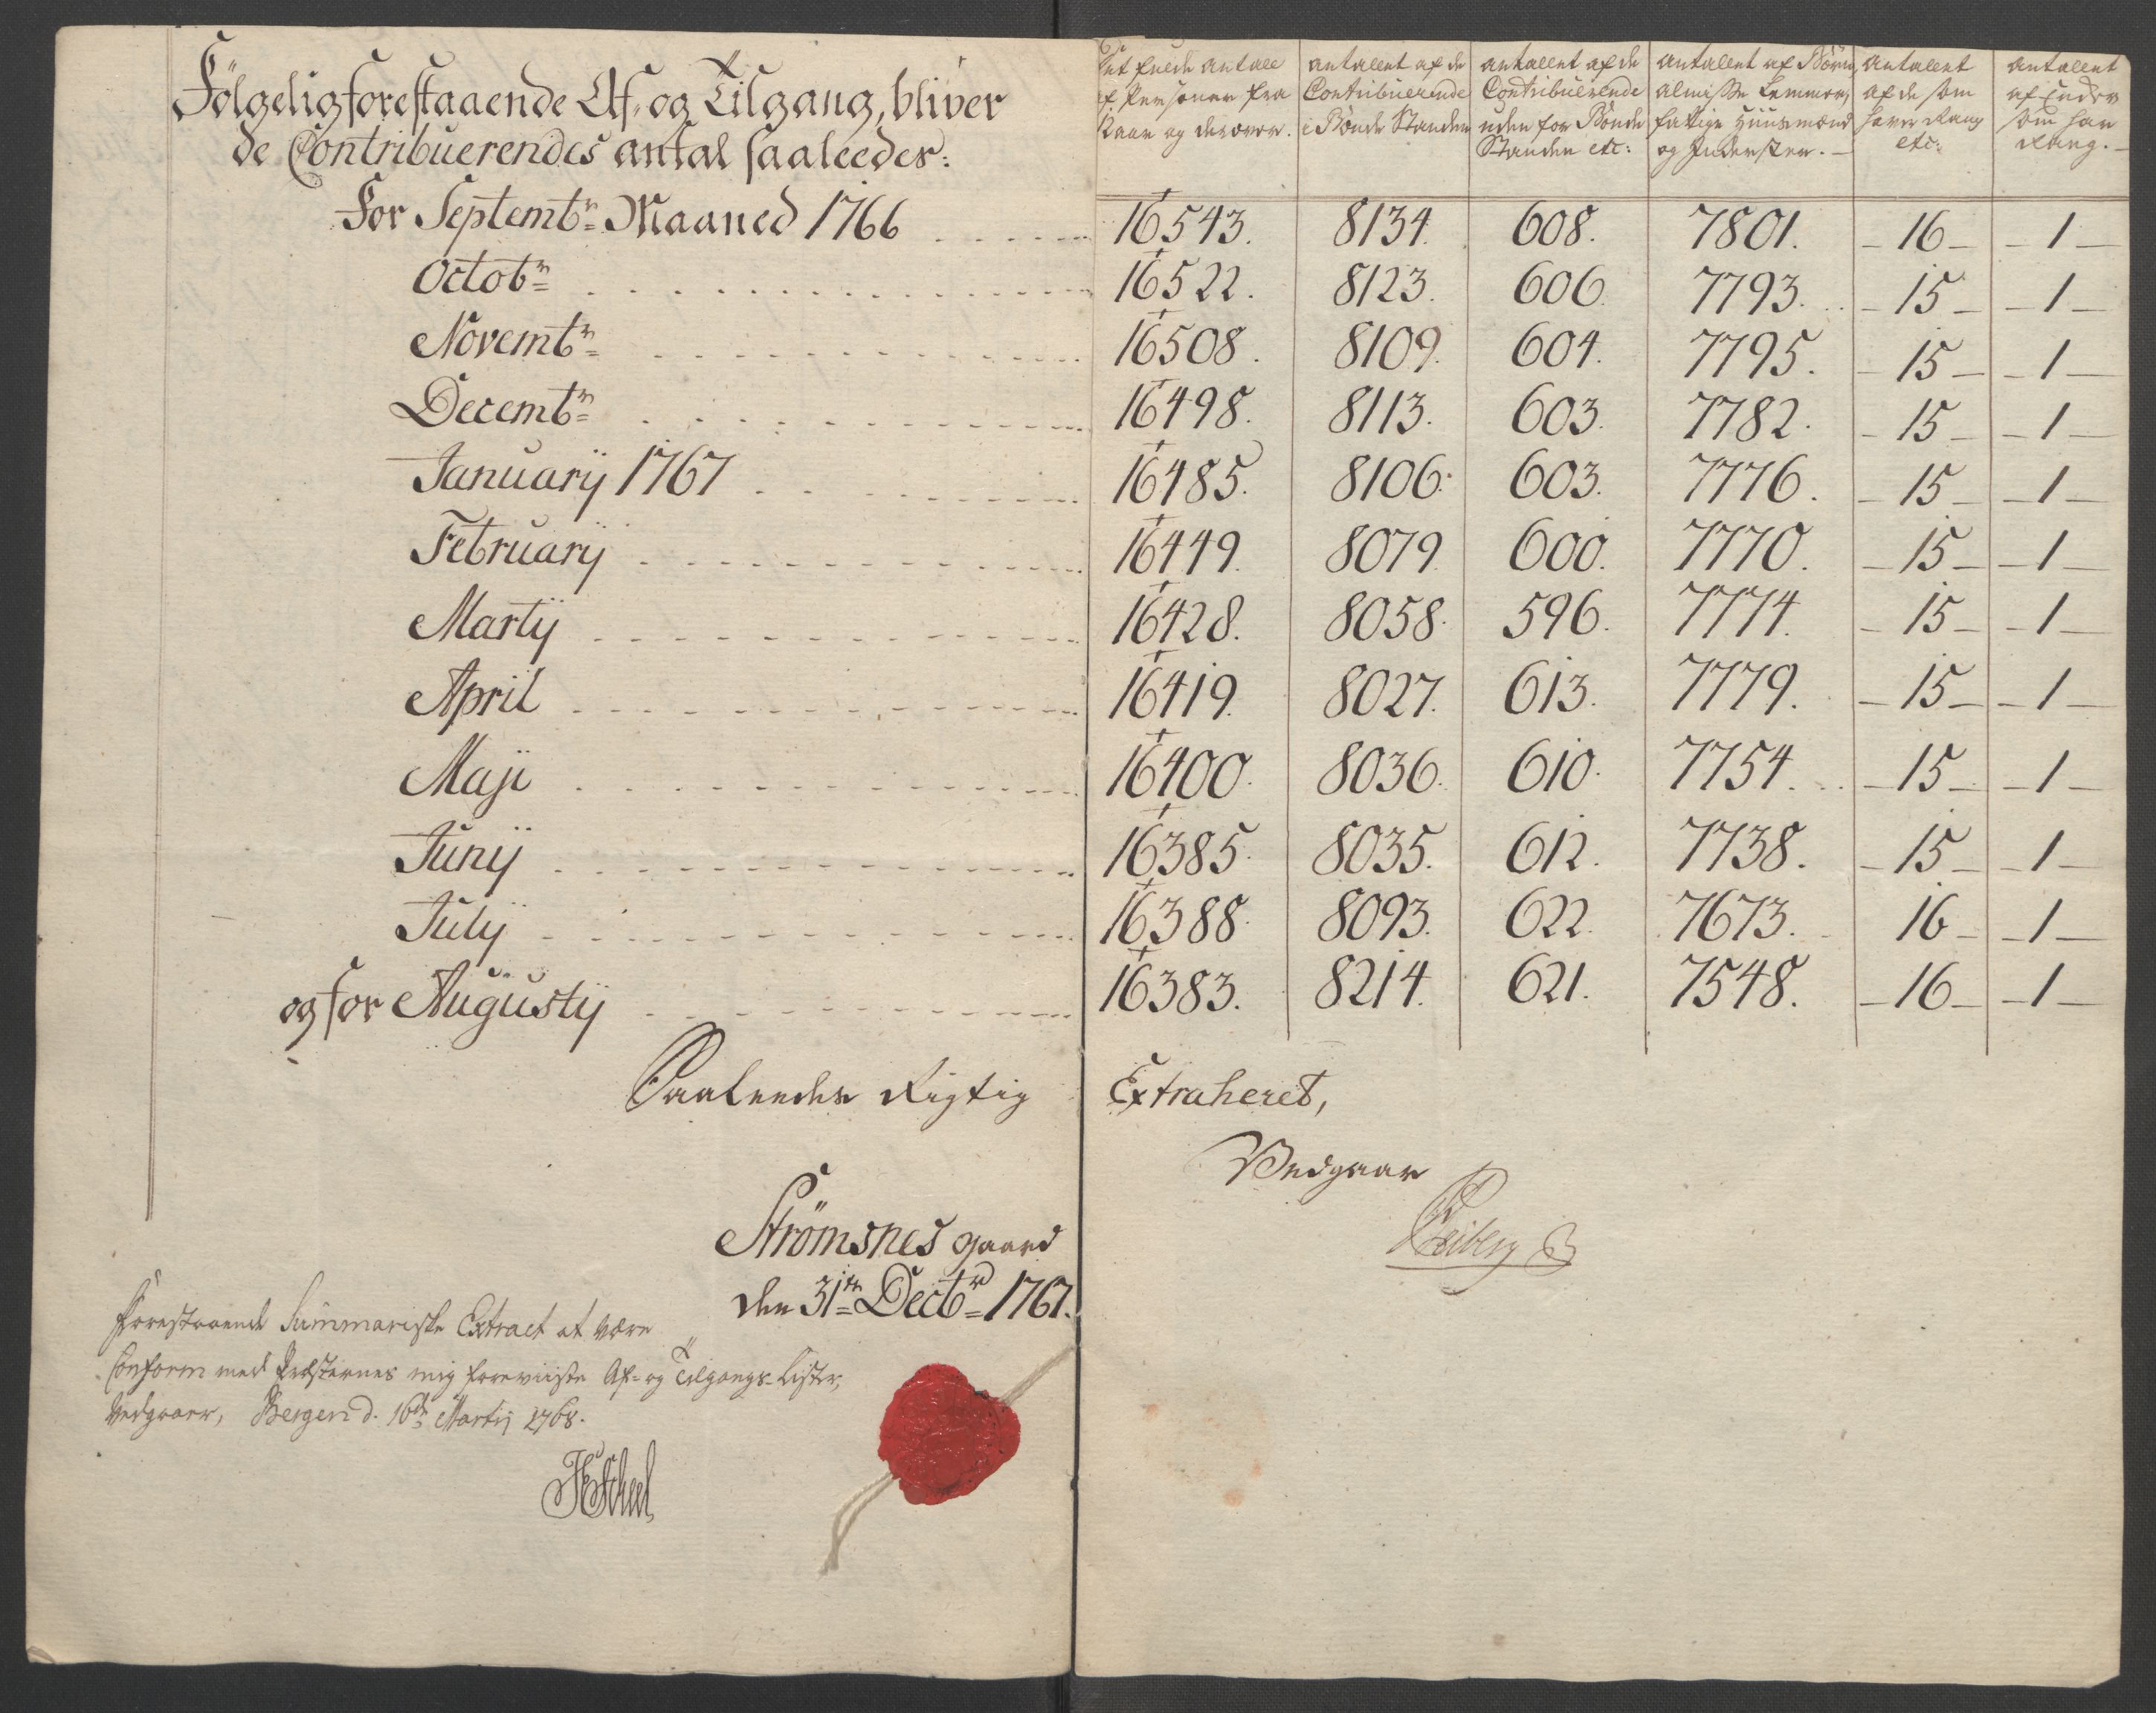 Følgelig forestaaende Af- og Tilgang, bliver
de Contribuerendes antal saaleedes:
Det fulde Antall af Personer fra
Aar og derover.
antallet af de Contribuerende i Bonde Standen
antallet af de Contribuerende uden for Bonde Standen etc:
antallet af Børn, almisse Lemmer, fattige Huusmænd og Inderster.
antallet af de som haver Rang etc:
antallet af som har Rang.
For Septembr: Maaned 1766 16543. 8134. 608. 7801. 16 1
Octobr: 16522. 8123. 606. 7793. 15 1
Novembr: 16508. 8109. 604. 7795. 15 1
Decembr: 16498. 8113. 603. 7782. 15 1
Januarij 1767 16485. 8106. 603. 7776. 15 1
Februarij 16449. 8079. 600. 7770. 15 1
Martij 16428. 8058. 596. 7774. 15 1
April 16419. 8027. 613. 7779. 15 1
Maji 16400. 8036. 610. 7754. 15 1
Junij 16385. 8035. 612. 7738. 15 1
Julij 16388. 8093. 622. 7673. 16 1
og for Augustij 16383. 8214. 621. 7548. 16 1
Saaleedes Rigtig Extraheret,
Vedgaar
Strømsnes gaard
den 31te Decbr 1767.
Forestaaende Summariske Extract at være
Conform med Præsternes mig foreviiste Af- og Tilgangs-Lister,
Vedgaaer, Bergen d. 16de Martij 1768.